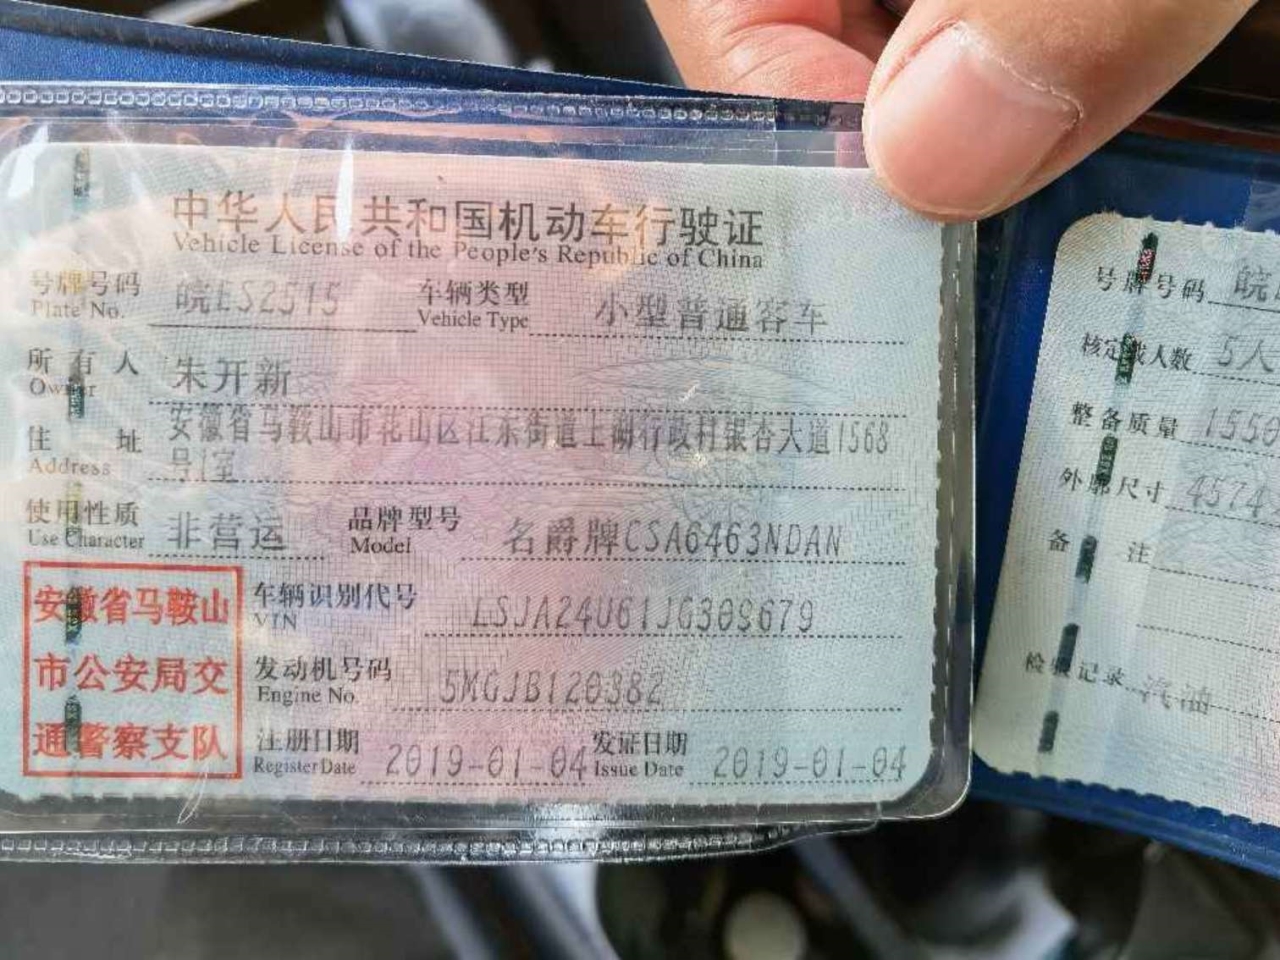 中华人民共和国机动车行驶证
Vehicle License of the People's Republic of China
号牌号码 皖ES2515 车辆类型 小型普通客车
Plate No. Vehicle Type
所有人 朱开新
Owner
住址 安徽省马鞍山市花山区江东街道上湖行政村银杏大道1568
Address 号1室
使用性质 非营运 品牌型号 名爵牌CSA6463NDAN
Use Character Model
安徽省马鞍山
市公安局交
通警察支队
车辆识别代号 LSJA24U61JG309679
VIN
发动机号码 5MGJB120382
Engine No.
注册日期 2019-01-04 发证日期 2019-01-04
Register Date Issue Date
号牌号码 皖
核定载人数 5人
整备质量 1550
外廓尺寸 4574
备注
检验记录 汽油